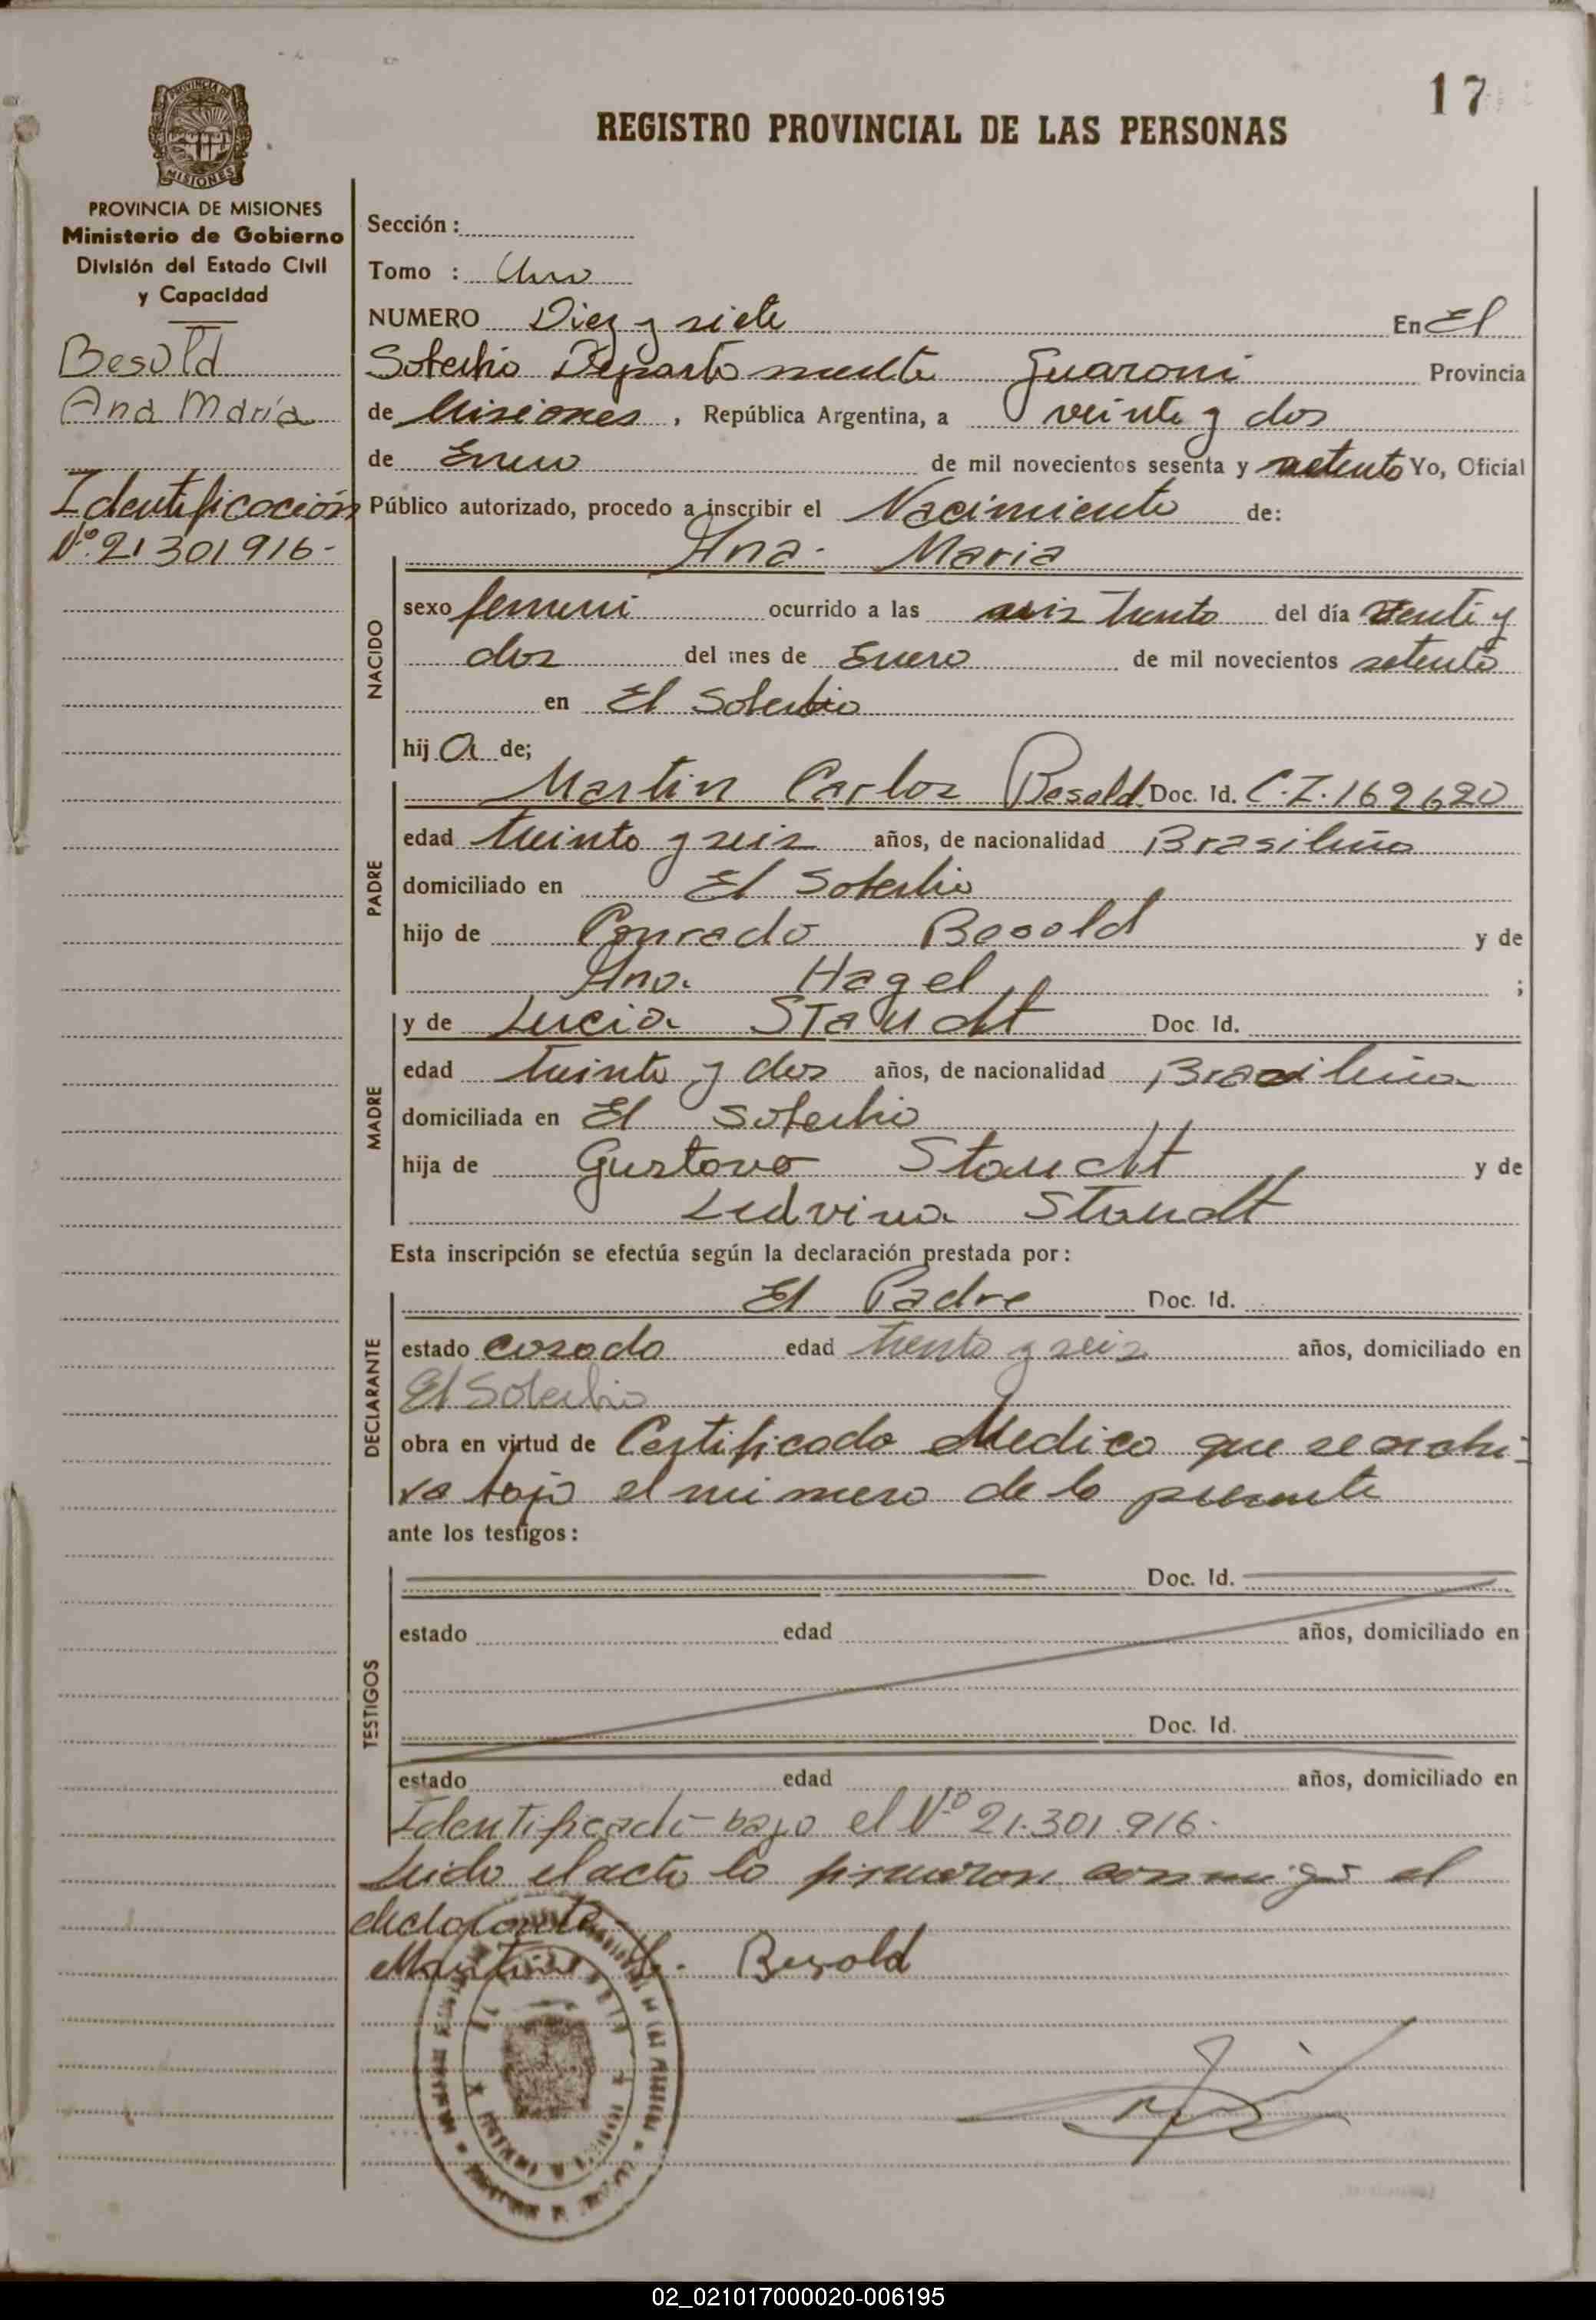 17
REGISTRO PROVINCIAL DE LAS PERSONAS
PROVINCIA DE
MISIONES
PROVINCIA DE MISIONES
Ministerio de Gobierno
División del Estado Civil
y Capacidad
Besold
Ana María
Identificación
Nº 21301916-
Sección :
Tomo : Uno
NUMERO Diez y siete En El
Soberbio Departamento Guarani Provincia
de Misiones, República Argentina, a veinte y dos
de Enero de mil novecientos sesenta y setenta Yo, Oficial
Público autorizado, procedo a inscribir el Nacimiento de:
NACIDO
Ana Maria
sexo femeni ocurrido a las seis treinta del día veinte y
dos del mes de Enero de mil novecientos setenta
en El Soberbio
hij a de;
PADRE
Martin Carlos Besold Doc. Id. C.I. 169620
edad treinta y seis años, de nacionalidad Brasileña
domiciliado en El Soberbio
hijo de Conrado Besold y de
Ana Hagel ;
MADRE
y de Lucia Staudt Doc. Id.
edad treinta y dos años, de nacionalidad Brasileña
domiciliada en El Soberbio
hija de Gustavo Staudt y de
Ledvina Staudt
Esta inscripción se efectúa según la declaración prestada por:
DECLARANTE
El Padre Doc. Id.
estado casado edad treinta y seis años, domiciliado en
El Soberbio
obra en virtud de Certificado Medico que se archi-
va bajo el numero de la presente
ante los testigos:
TESTIGOS
Doc. Id.
estado edad años, domiciliado en
Doc. Id.
estado edad años, domiciliado en
Identificado bajo el Nº 21.301.916.
Leido el acta la firmaron conmigo el
declarante
Martin C. Besold
02_021017000020-006195